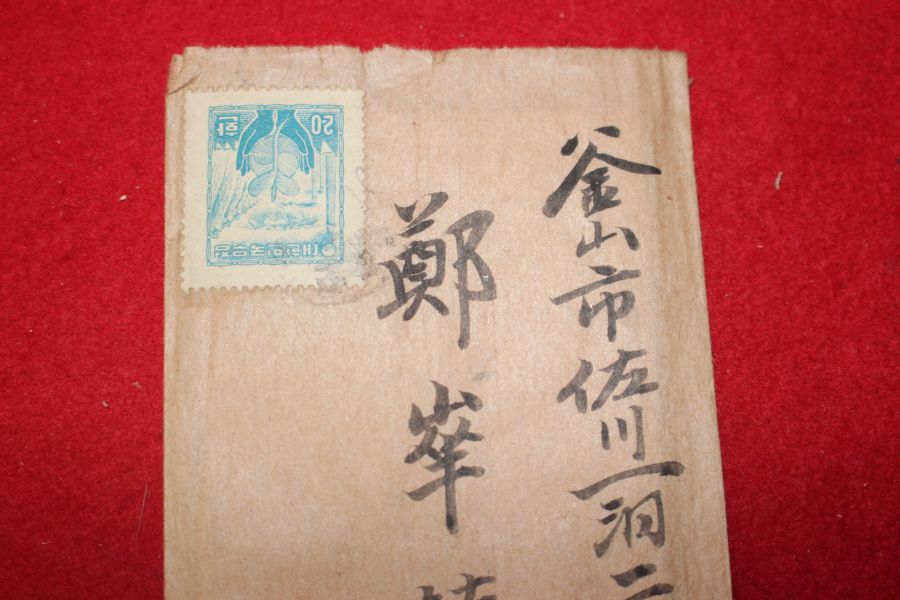 釜山市佐川一洞二
鄭崋
20 환
대한민국우표